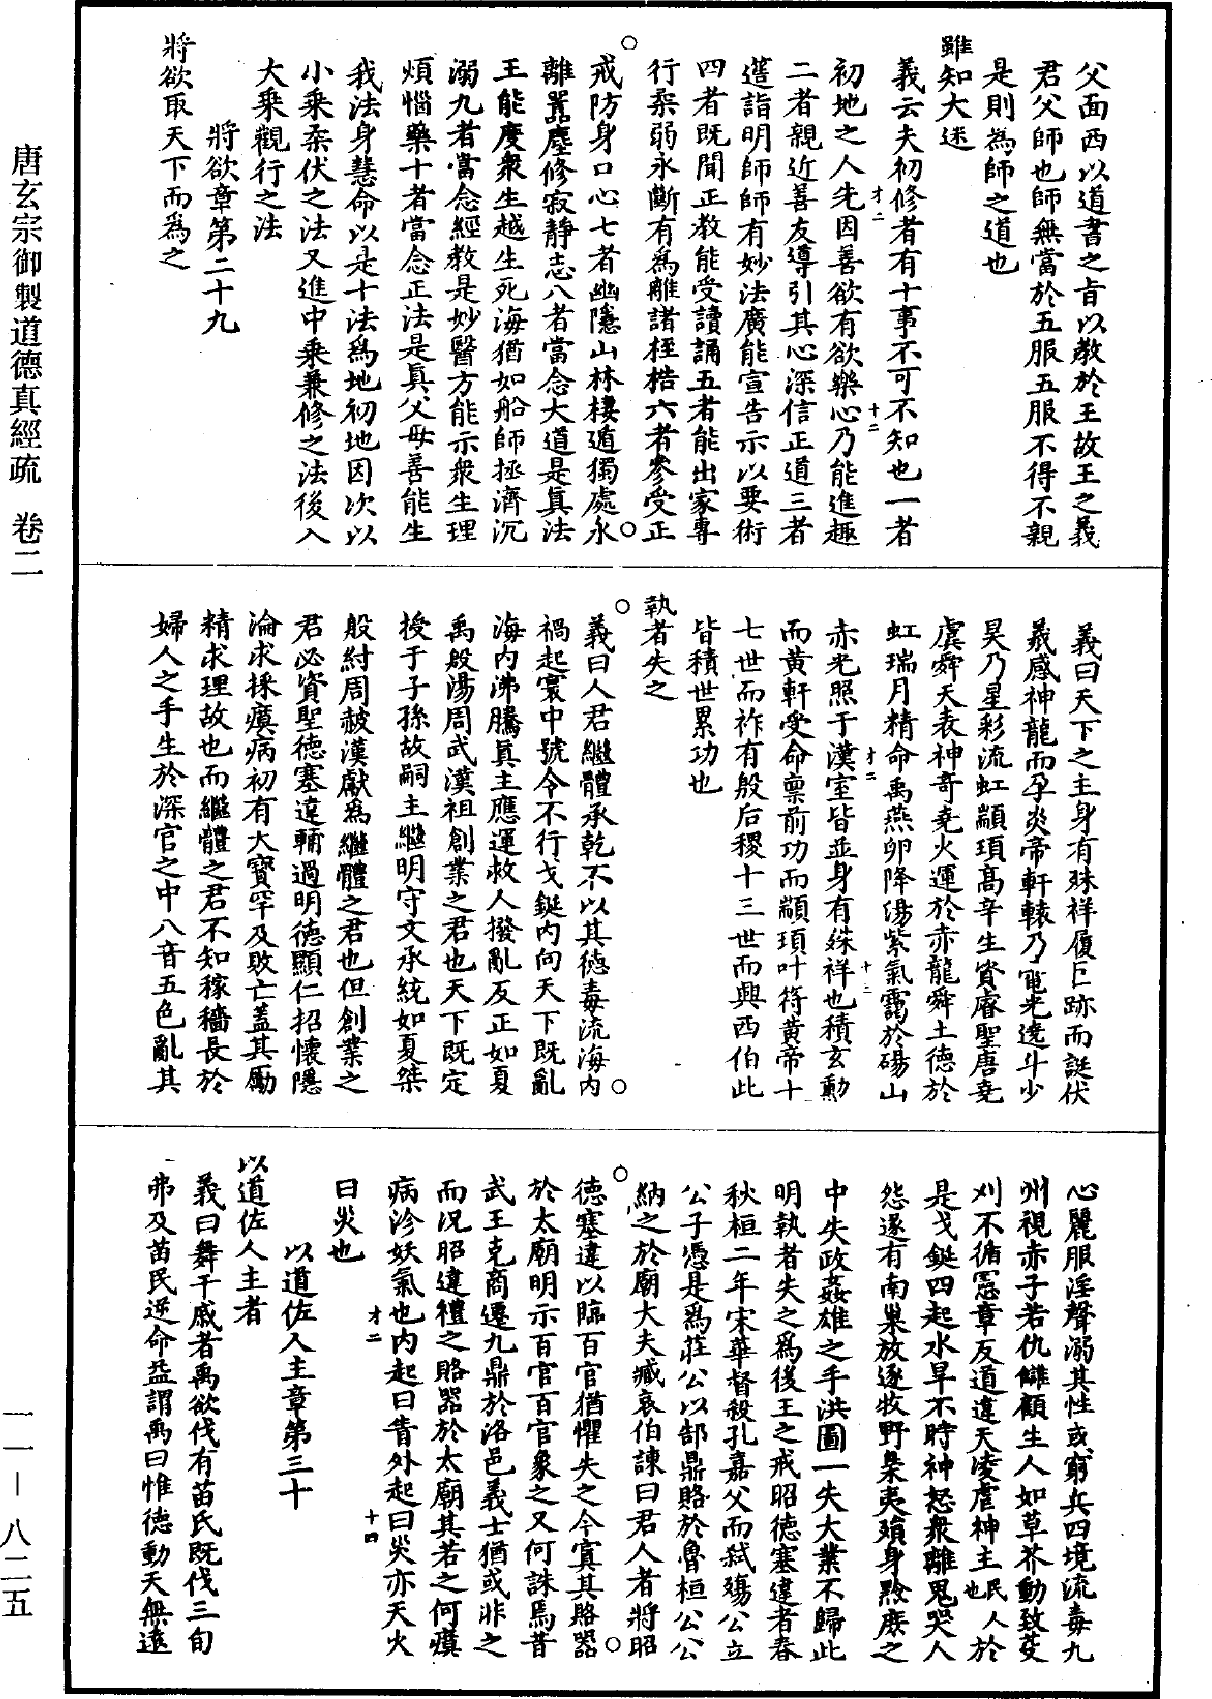 唐玄宗御製道德真經疏　卷二
一一—八二五
父面西以道書之旨以教於王故王之義
君父師也師無當於五服五服不得不親
是則為師之道也
雖知大迷
義云夫初修者有十事不可不知也一者
初地之人先因善欲有欲樂心乃能進趣
二者親近善友導引其心深信正道三者
選詣明師師有妙法廣能宣告示以要術
四者既聞正教能受讀誦五者能出家專
行柔弱永斷有為離諸桎梏六者參受正
戒防身口心七者幽隱山林棲遁獨處永
離囂塵修寂靜志八者當念大道是真法
王能度衆生越生死海猶如船師拯濟沉
溺九者當念經教是妙醫方能示衆生理
煩惱藥十者當念正法是真父母善能生
我法身慧命以是十法為地初地因次以
小乘柔伏之法又進中乘兼修之法後入
大乘觀行之法
將欲章第二十九
將欲取天下而為之
義曰天下之主身有殊祥履巨跡而誕伏
羲感神龍而孕炎帝軒轅乃電光遶斗少
昊乃星彩流虹顓頊高辛生資睿聖唐堯
虞舜天表神奇堯火運於赤龍舜土德於
虹瑞月精命禹燕卵降湯紫氣靄於碭山
赤光照于漢室皆並身有殊祥也積玄勳
而黃軒受命稟前功而顓頊叶符黃帝十
七世而祚有殷后稷十三世而興西伯此
皆積世累功也
執者失之
義曰人君繼體承乾不以其德毒流海內
禍起寰中號令不行戈鋋內向天下既亂
海內沸騰真主應運救人撥亂反正如夏
禹殷湯周武漢祖創業之君也天下既定
授于子孫故嗣主繼明守文承統如夏桀
殷紂周赧漢獻為繼體之君也但創業之
君必資聖德塞違輔過明德顯仁招懷隱
淪求採瘼病初有大寶罕及敗亡蓋其勵
精求理故也而繼體之君不知稼穡長於
婦人之手生於深宮之中八音五色亂其
心麗服淫聲溺其性或窮兵四境流毒九
州視赤子若仇讎顧生人如草芥動致芟
刈不循憲章反道違天凌虐神主民也人於
是戈鋋四起水旱不時神怒衆離鬼哭人
怨遂有南巢放逐牧野梟夷殞身黜廢之
中失政姦雄之手洪圖一失大業不歸此
明執者失之為後王之戒昭德塞違者春
秋桓二年宋華督殺孔嘉父而弒殤公立
公子馮是為莊公以郜鼎賂於魯桓公公
納之於廟大夫臧哀伯諫曰君人者將昭
德塞違以臨百官猶懼失之今寘其賂器
於太廟明示百官百官象之又何誅焉昔
武王克商遷九鼎於洛邑義士猶或非之
而況昭違禮之賂器於太廟其若之何瘼
病沴妖氣也內起曰眚外起曰災亦天火
曰災也
以道佐人主章第三十
以道佐人主者
義曰舞干戚者禹欲伐有苗氏既伐三旬
弗及苗民逆命益謂禹曰惟德動天無遠